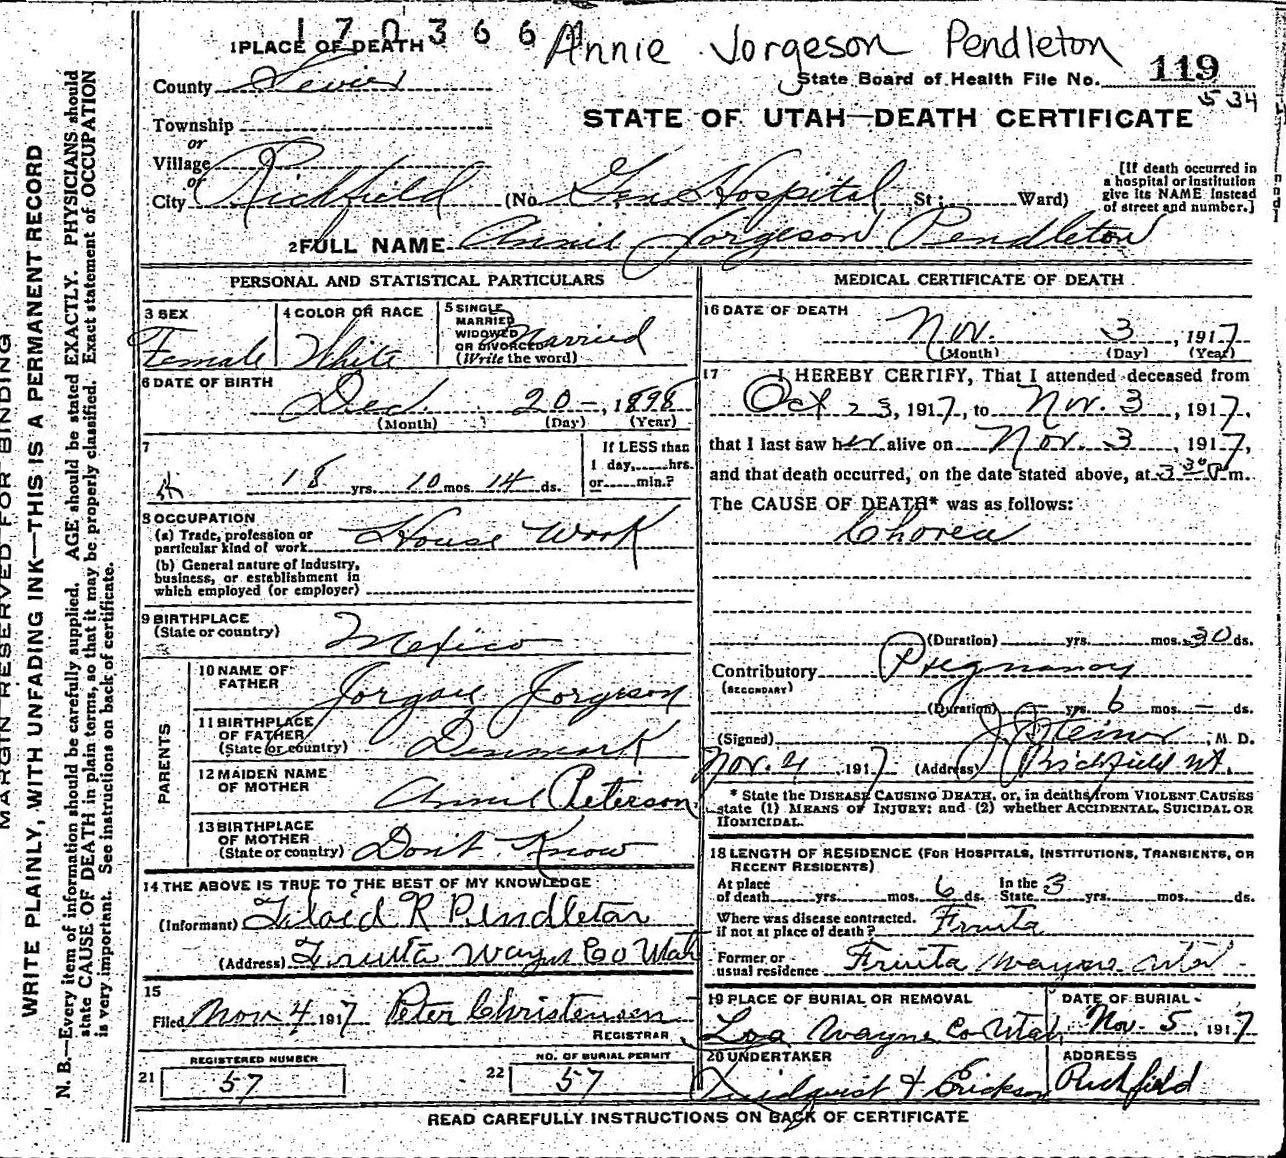 170366 Annie Jorgeson Pendleton
1 PLACE OF DEATH
State Board of Health File No. 119
534
County Sevier
STATE OF UTAH—DEATH CERTIFICATE
Township
or
Village
or
City Richfield (No. Gen Hospital St; Ward)
[If death occurred in
a hospital or institution
give its NAME instead
of street and number.]
2 FULL NAME Annie Jorgeson Pendleton
PERSONAL AND STATISTICAL PARTICULARS
3 SEX
Female
4 COLOR OR RACE
White
5 SINGLE
MARRIED
WIDOWED
OR DIVORCED
(Write the word)
Married
6 DATE OF BIRTH
Dec. 20-, 1898
(Month) (Day) (Year)
7
18 yrs. 10 mos. 14 ds.
If LESS than
1 day, hrs.
or min.?
8 OCCUPATION
(a) Trade, profession or
particular kind of work House Work
(b) General nature of industry,
business, or establishment in
which employed (or employer)
9 BIRTHPLACE
(State or country) Mexico
PARENTS
10 NAME OF
FATHER Jorgan Jorgeson
11 BIRTHPLACE
OF FATHER
(State or country) Denmark
12 MAIDEN NAME
OF MOTHER Annie Peterson
13 BIRTHPLACE
OF MOTHER
(State or country) Don't Know
14 THE ABOVE IS TRUE TO THE BEST OF MY KNOWLEDGE
(Informant) Floid R Pendleton
(Address) Fruita Wayne Co Utah
15
Filed Nov 4 1917 Peter Christensen
REGISTRAR
REGISTERED NUMBER
21 57
NO. OF BURIAL PERMIT
22 57
MEDICAL CERTIFICATE OF DEATH
16 DATE OF DEATH
Nov. 3, 1917
(Month) (Day) (Year)
17 I HEREBY CERTIFY, That I attended deceased from
Oct 23, 1917, to Nov. 3, 1917,
that I last saw her alive on Nov. 3, 1917,
and that death occurred, on the date stated above, at 3 30 P m.
The CAUSE OF DEATH* was as follows:
Chorea
(Duration) yrs. mos. 30 ds.
Contributory Pregnancy
(SECONDARY)
(Duration) — yrs. 6 mos. — ds.
(Signed) J. J. Steiner, M. D.
Nov. 4, 1917 (Address) Richfield Ut.
* State the DISEASE CAUSING DEATH, or, in deaths from VIOLENT CAUSES
state (1) MEANS OF INJURY; and (2) whether ACCIDENTAL, SUICIDAL OR
HOMICIDAL.
18 LENGTH OF RESIDENCE (FOR HOSPITALS, INSTITUTIONS, TRANSIENTS, OR
RECENT RESIDENTS)
At place
of death yrs. mos. 6 ds. In the
State 3 yrs. mos. ds.
Where was disease contracted.
if not at place of death? Fruita
Former or
usual residence Fruita Wayne
19 PLACE OF BURIAL OR REMOVAL
Loa Wayne Co Utah
DATE OF BURIAL
Nov. 5, 1917
20 UNDERTAKER
Lindquist & Erickson
ADDRESS
Richfield
READ CAREFULLY INSTRUCTIONS ON BACK OF CERTIFICATE
MARGIN RESERVED FOR BINDING
WRITE PLAINLY, WITH UNFADING INK—THIS IS A PERMANENT RECORD
N. B.—Every item of information should be carefully supplied. AGE should be stated EXACTLY. PHYSICIANS should
state CAUSE OF DEATH in plain terms, so that it may be properly classified. Exact statement of OCCUPATION
is very important. See instructions on back of certificate.